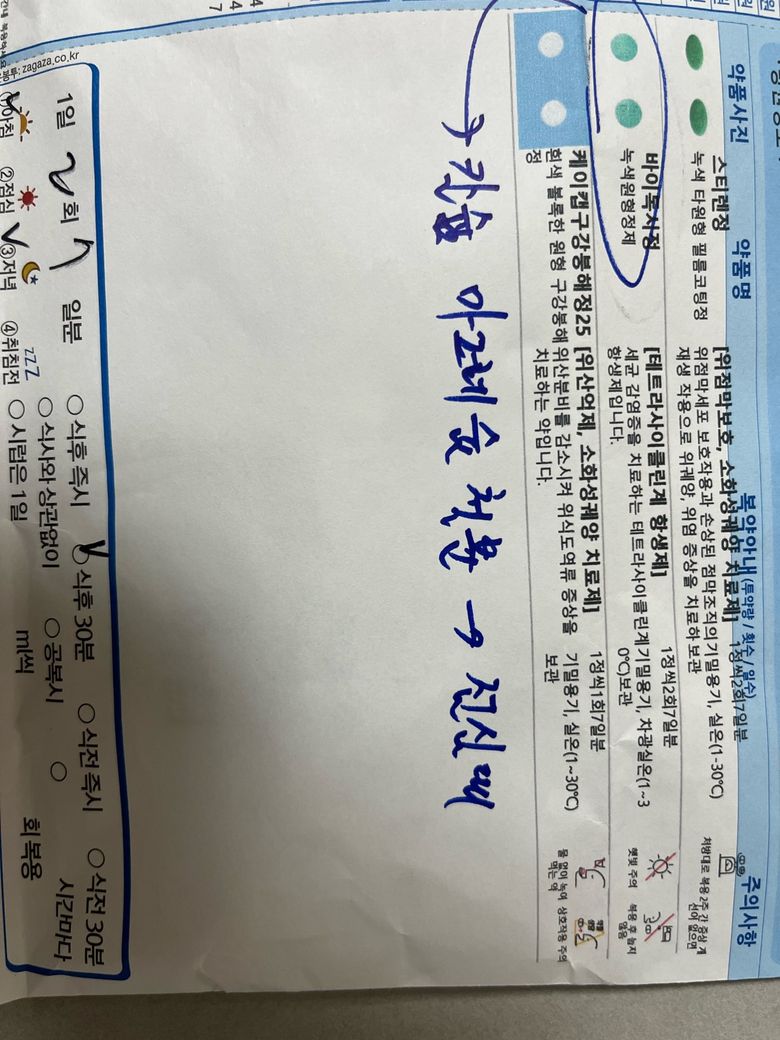 약품사진 약품명 복약안내 (투약량 / 횟수 / 일수) 주의사항
스티렌정
녹색 타원형 필름코팅정
[위점막보호, 소화성궤양 치료제]
위점막세포 보호작용과 손상된 점막조직의
재생 작용으로 위궤양, 위염 증상을 치료하
1정씩2회7일분
기밀용기, 실온(1-30℃)
보관
처방대로 복용 2주 간 증상 개
선이 없으면
바이독시정
녹색원형정제
[테트라사이클린계 항생제]
세균 감염증을 치료하는 테트라사이클린계
항생제입니다.
1정씩2회7일분
기밀용기, 차광실온(1~3
0℃)보관
햇빛 주의
복용 후 눕지
않음
케이캡구강붕해정25
흰색 볼록한 원형 구강붕해
정
[위산억제, 소화성궤양 치료제]
위산분비를 감소시켜 위식도역류 증상을
치료하는 약입니다.
1정씩1회7일분
기밀용기, 실온(1~30℃)
보관
물 없이 녹여
먹는 약
상호작용 주의
→ 아그레 →
1일 2 회 7 일분
①아침 ②점심 ③저녁 ④취침전
zzz
식후 즉시 식후 30분 식전 즉시 식전 30분
식사와 상관없이 공복시 시간마다
시럽은 1일 ml씩 회 복용
봉투: zagaza.co.kr